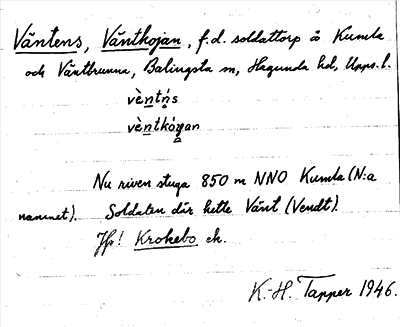 Väntens, Väntkojan, f.d. soldattorp å Kumla
och Väntbrunna, Balingsta sn, Hagunda hd, Upps. l.
vèntńs
vèntkójan
Nu riven stuga 850 m NNO Kumla (N:a
namnet). Soldaten där hette Vänt (Vendt).
Jfr! Krokebo ek.
K.-H. Tapper 1946.